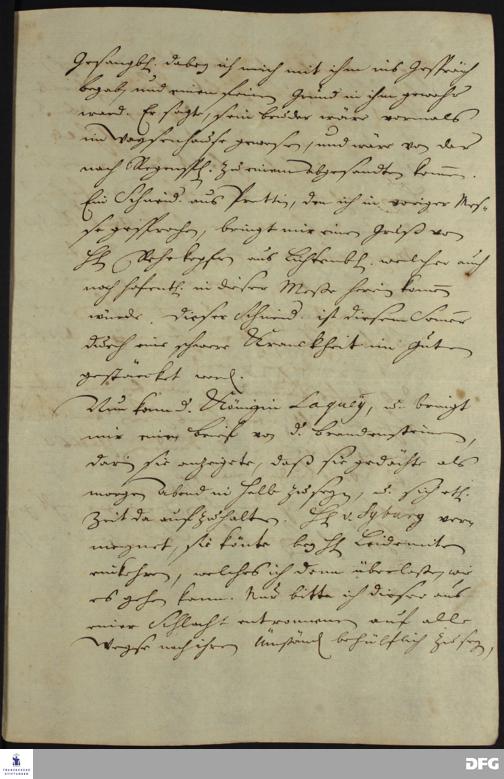 Gesangb. dabey ich mich mit ihm ins Gespräch
begab, und einen feinen Grund in ihm gewahr
ward. Er sagt, sein bruder wäre vormals
im Waysenhause gewesen, und wäre von dar
nach Regensp. zu einem abgesandten komm.
Ein Schneid. aus Prettin, den ich in voriger Mes-
se gesprochen, bringt mir einen Gruß von
H. Rehekopfen aus Lichtenb. welcher auch
noch hofentl. in dieser Meße herein komm
würde. Dieser Schneid. ist diesen Somer
durch eine schwere Kranckheit im guten
gestärcket word.
Nun kam d. Königin Laquey, u. bringt
mir einen brief von d. brandenstein,
darin sie anzeigete, daß sie gedächte als
morgen Abend in Halle zu seyn, u. sich etl.
Zeit da aufzuhalten. H. v. Syburg ver
meynet, sie könte bey H.
einkehren, welches ich denn überlaße, wie
es gehen kann. Nur bitte ich dieser aus
einer Schlacht entronnenen auf alle
Weyse nach ihren Umständ behülflich zu seyn,
DFG
FRANCKESCHE
STIFTUNGEN